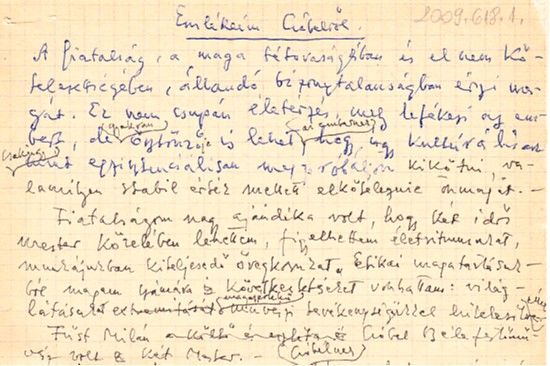 Emlékeim Czóbelről.
2009.618.1.
A fiatalság, a maga tétovaságában és el nem kö-
telezettségében, állandó bizonytalanságban érzi ma-
gát. Ez nem csupán életérzés, mely lefékezi az em-
bert, de gyakran ösztönzője is lehet az embernek, hogy
egzisztenciálisan megpróbáljon kikötni, va-
lamilyen stabil érték mellett elkötelezni önmagát. –
Fiatalságom nagy ajándéka volt, hogy két idős
mester közelében lehettem, figyelhettem életritmusukat,
munkájukban kiteljesedő öregkorukat. Etikai magatartásuk-
ból magam számára következtetést vonhattam: világ-
látásukat művészi tevékenységükkel hitelesítették
Füst Milán Czóbel Béla festőmű-
vész volt a két Mester. –